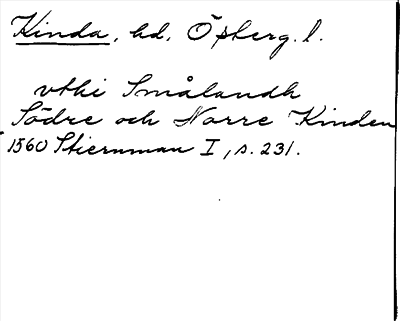 Kinda, hd, Östberg. l.
vthi Smålandh
Södre och Norre Kinden
1560 Stiernman I, s. 231.